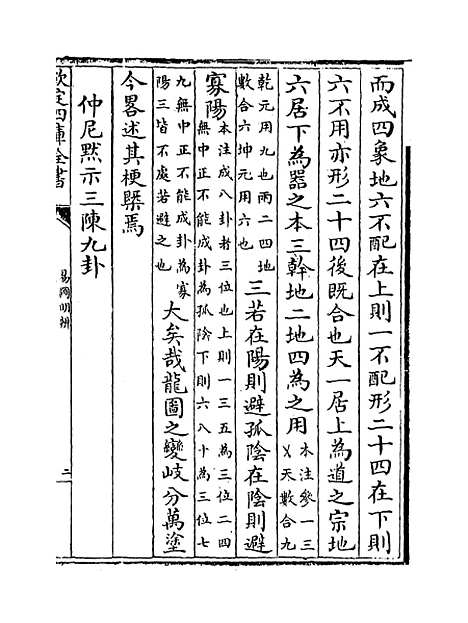 而成四象地六不配在上則一不配形二十四在下則
六不用亦形二十四後既合也天一居上為道之宗地
六居下為器之本三幹地二地四為之用本注參一三
乂天數合九
乾元用九也兩二四地
數合六坤元用六也
三若在陽則避孤陰在陰則避
寡陽本注成八卦者三位也上則一三五為三位二四
無中正不能成卦為孤陰下則六八十為三位七
九無中正不能成卦為寡
陽三皆不處若避之也
大矣哉龍圖之變岐分萬塗
今畧述其梗槩焉
仲尼默示三陳九卦
欽定四庫全書
易圖明辨
二